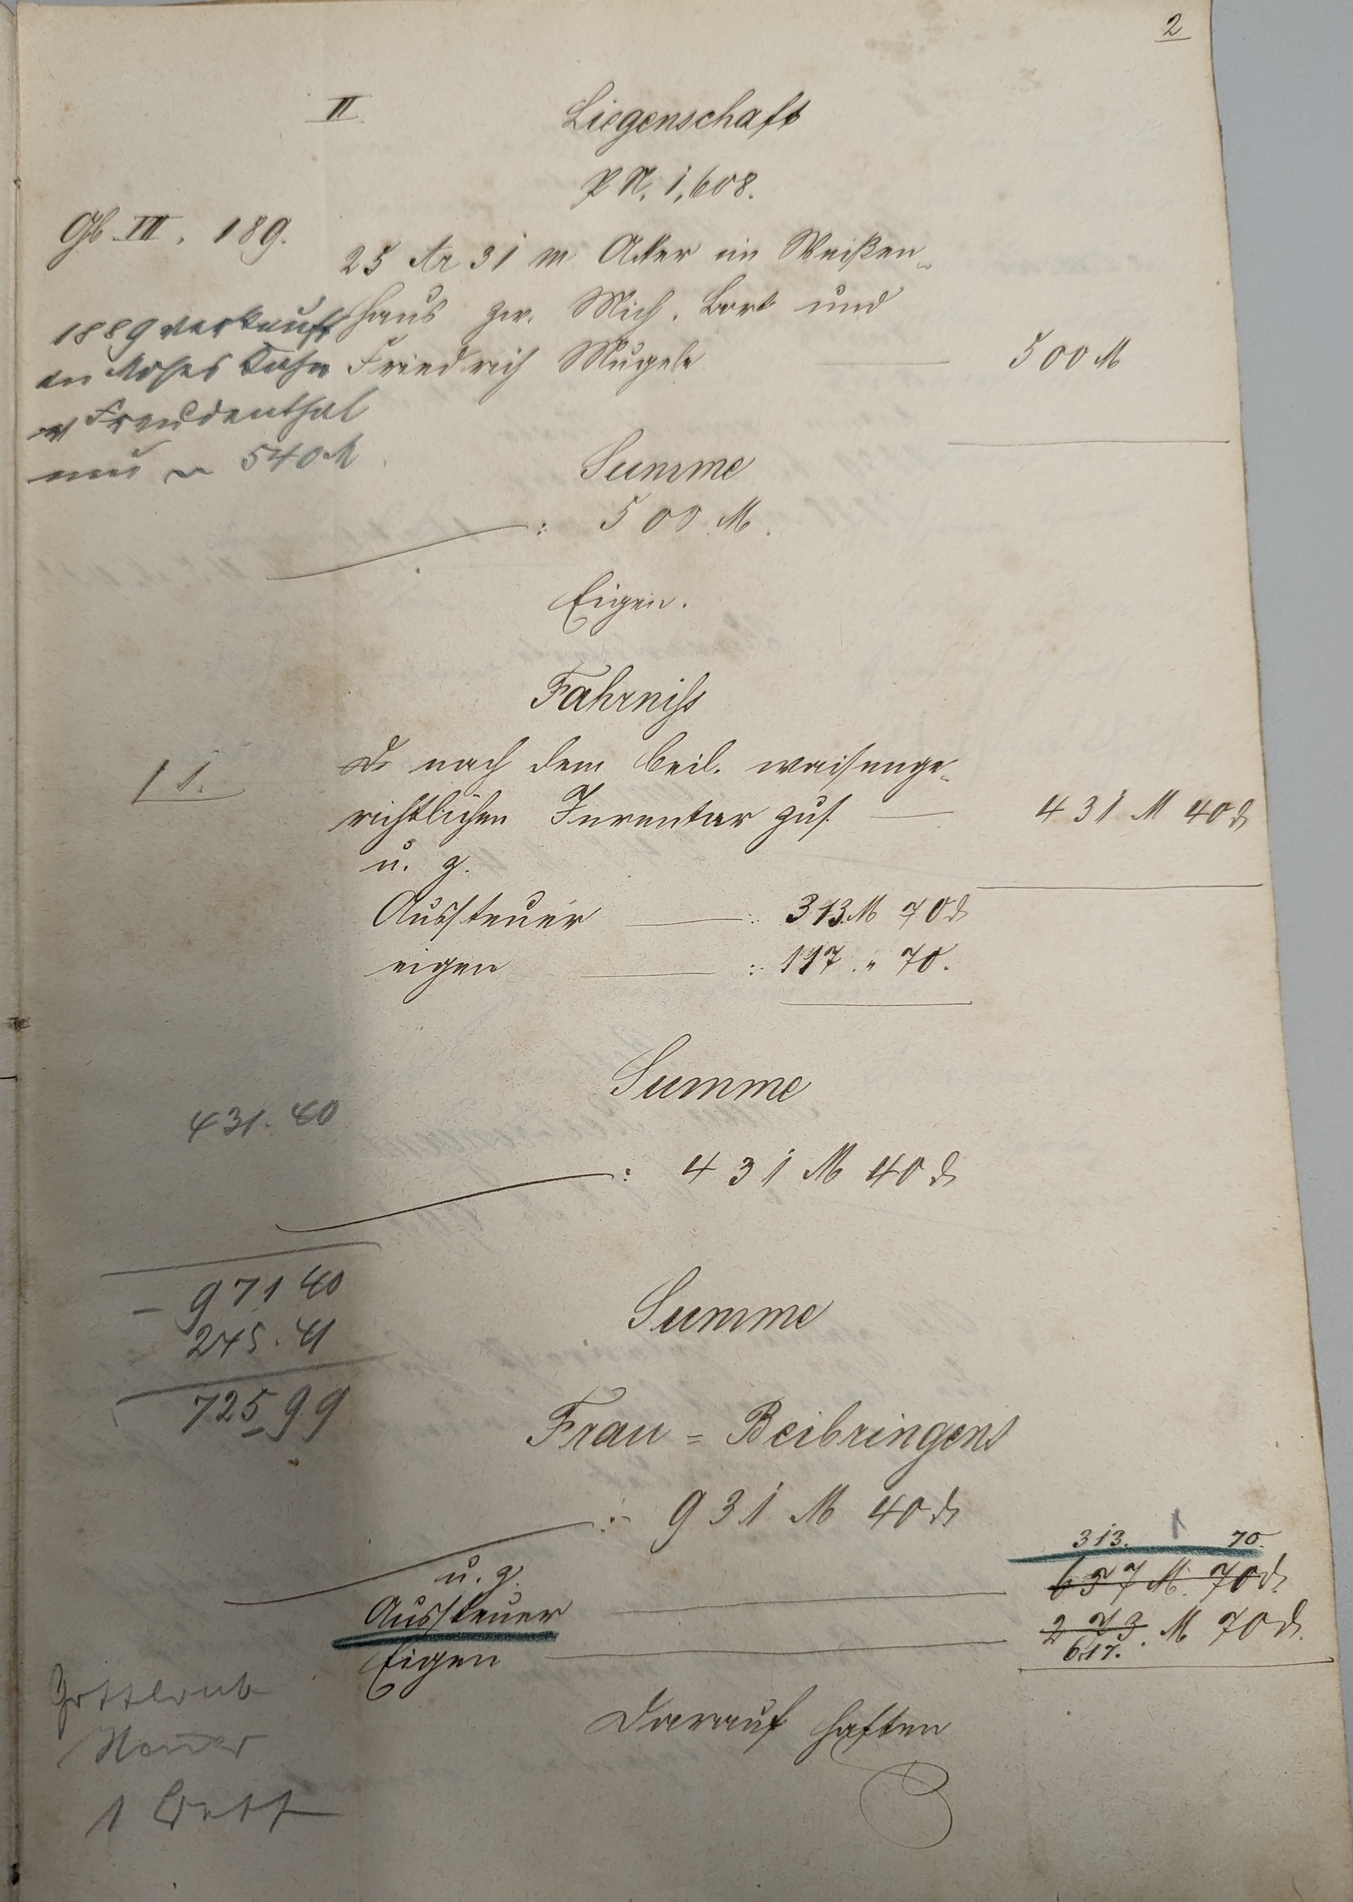 2
II
Liegenschaft
P N. 1,608.
Gb. III. 189.
25 Ar 31 m Acker im Weißen-
haus zw. Mich. Bork und
Friedrich Mugele — 500 M
1889 verkauft
an Moses Kahn
v Freudenthal
um 540 M
Summe
: 500 M.
Eigen.
Fahrniss
1 1.
nach dem beil. waisenge-
richtlichen Inventar zus. — 431 M 40 d
u. z.
Aussteuer — : 313. M 70 d
eigen — : 117 " 70.
Summe
431. 40
: 431 M 40 d
- 971 40
245. 41
725 99
Summe
Frau = Beibringens
: 931 M 40 d
u. z.
313. 1 70.
Aussteuer — 657 M. 70 d.
Eigen — 273. M 70 d.
617.
Darauf haften
1 Bett